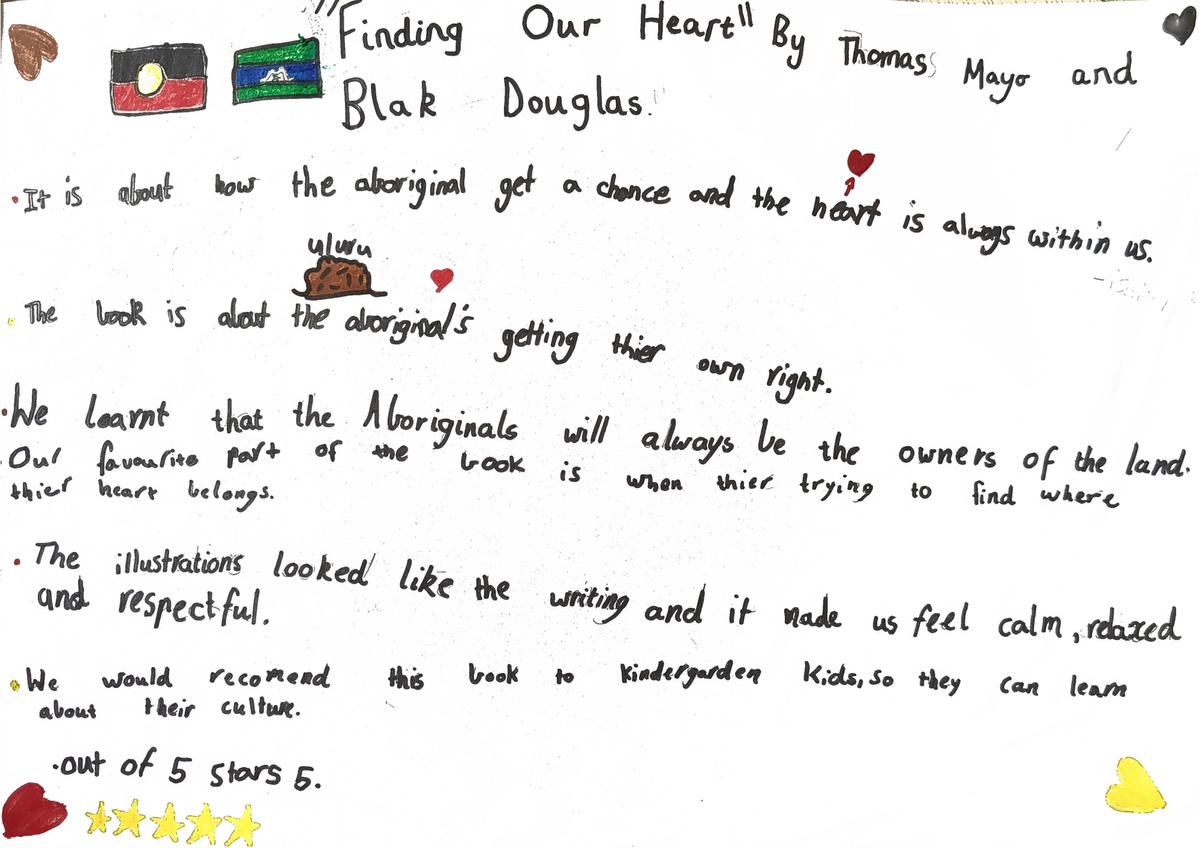 "Finding Our Heart" By Thomas Mayo and
Blak Douglas.
• It is about how the aboriginal get a chance and the heart is always within us.
uluru
• The book is about the aboriginal's getting thier own right.
• We learnt that the Aboriginals will always be the owners of the land.
• Our favourite part of the book is when thier trying to find where
thier heart belongs.
• The illustrations looked like the writing and it made us feel calm, relaxed
and respectful.
• We would recomend this book to kindergarden kids, so they can learn
about their culture.
• out of 5 stars 5.